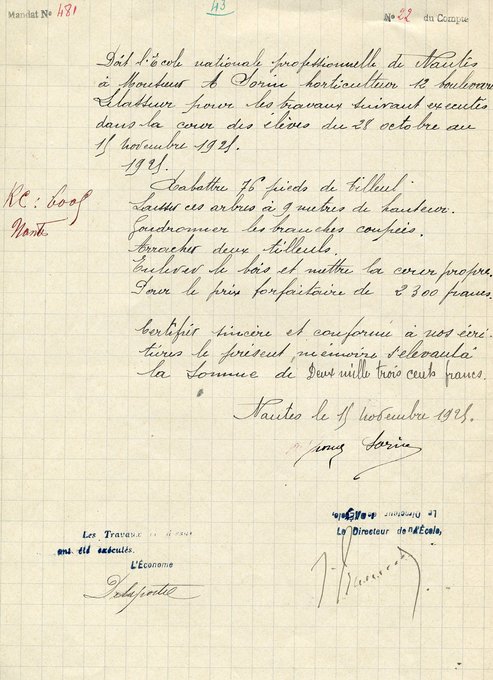 Mandat No 481
43
No 22 du Compte
Doit l'École nationale professionnelle de Nantes
à Monsieur A Sorin horticulteur 12 boulevard
Lelasseur pour les travaux suivant executés
dans la cour des élèves du 28 octobre au
15 novembre 1925.
1925.
Rabattre 76 pieds de tilleul.
Laisser ces arbres à 9 mètres de hauteur.
Goudronner les branches coupées.
Arracher deux tilleuls.
Enlever le bois et mettre la cour propre.
Pour le prix forfaitaire de 2300 francs.
RC: 6005
Nante
Certifié sincère et conforme à nos écri-
tures le présent mémoire s'élevant à
la somme de Deux mille trois cents francs.
Nantes le 15 novembre 1925.
Sorin
Les Travaux
ont été exécutés.
L'Économe
Delaporte
Le Directeur de l'École,
Le Directeur de l'École,